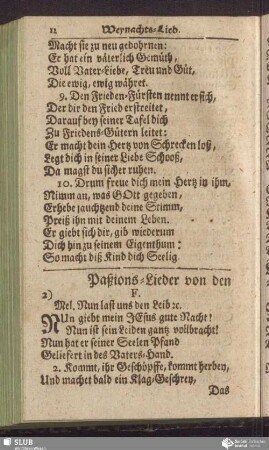 12 Weynachts-Lied.
Macht sie zu neu gebohrnen:
Er hat ein väterlich Gemüth,
Voll Vater-Liebe, Treu und Güt,
Die ewig, ewig währet.
9. Den Frieden-Fürsten nennt er sich,
Der dir den Fried erstreitet,
Darauf bey seiner Tafel dich
Zu Friedens-Gütern leitet:
Er macht dein Hertz von Schrecken loß,
Legt dich in seiner Liebe Schooß,
Da magst du sicher ruhen.
10. Drum freue dich mein Hertz in ihm,
Nimm an, was GOtt gegeben,
Erhebe jauchtzend deine Stimm,
Preiß ihn mit deinem Leben.
Er giebt sich dir, gib wiederum
Dich hin zu seinem Eigenthum:
So macht diß Kind dich Seelig.
Paßions-Lieder von den
F.
2)
Mel. Nun last uns den Leib ꝛc.
NUn giebt mein JEsus gute Nacht!
Nun ist sein Leiden gantz vollbracht!
Nun hat er seiner Seelen Pfand
Geliefert in des Vaters-Hand.
2. Kommt, ihr Geschöpffe, kommt herbey,
Und machet bald ein Klag-Geschrey,
Das
SLUB